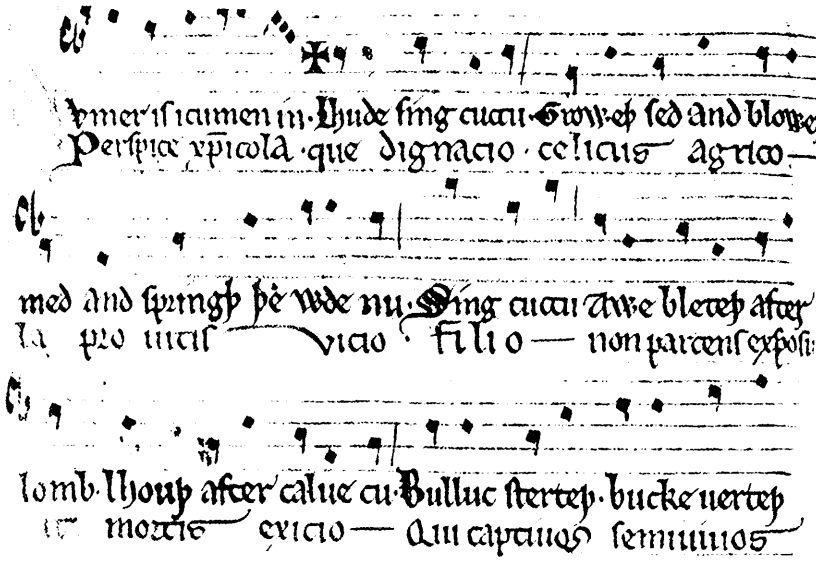 ymer is icumen in· Lhude sing cuccu· Groweþ sed and blowe
Perspice xp̄icola · que dignacio · celicus agrico
med and springþ þe wde nu· Sing cuccu Awe bleteþ after
la pro uitis vicio · filio non parcens exposi
lomb· lhouþ after calue cu· Bulluc sterteþ· bucke uerteþ
it mortis exicio Qui captiuos semiuiuos